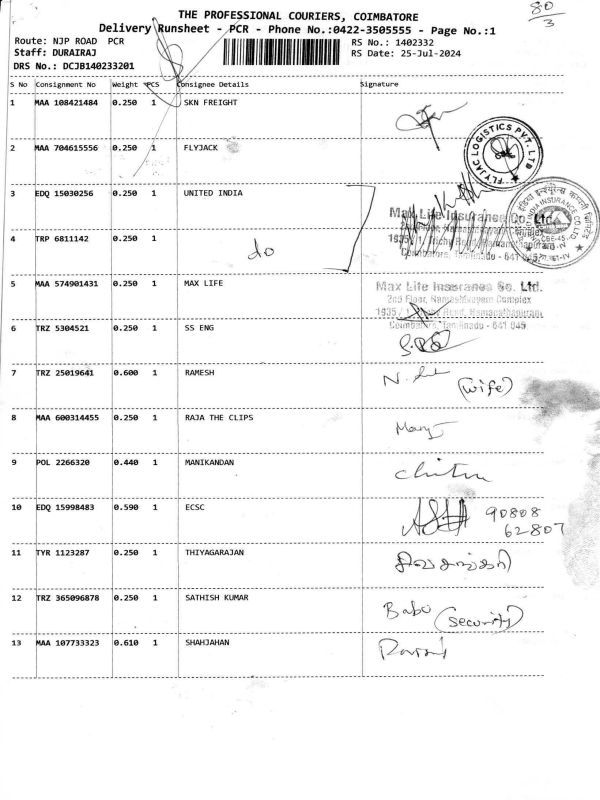 80
3
THE PROFESSIONAL COURIERS, COIMBATORE
Delivery Runsheet - PCR - Phone No.:0422-3505555 - Page No.:1
Route: NJP ROAD PCR
RS No.: 1402332
Staff: DURAIRAJ
RS Date: 25-Jul-2024
DRS No.: DCJB140233201
S No Consignment No Weight PCS Consignee Details Signature
1 MAA 108421484 0.250 1 SKN FREIGHT
2 MAA 704615556 0.250 1 FLYJACK
FLYJAC LOGISTICS PVT. LTD
3 EDQ 15030256 0.250 1 UNITED INDIA
Max Life Insurance Co. Ltd.
4 TRP 6811142 0.250 1 do
1935 / 1, Trichy Road, Ramanathapuram
Coimbatore, Tamilnadu - 641 045
5 MAA 574901431 0.250 1 MAX LIFE
Max Life Insurance Co. Ltd.
2nd Floor, Nameshivayam Complex
1935 / 1, Trichy Road, Ramanathapuram
Coimbatore, Tamilnadu - 641 045
6 TRZ 5304521 0.250 1 SS ENG
7 TRZ 25019641 0.600 1 RAMESH (wife)
8 MAA 600314455 0.250 1 RAJA THE CLIPS
9 POL 2266320 0.440 1 MANIKANDAN
10 EDQ 15998483 0.590 1 ECSC 90808
62807
11 TYR 1123287 0.250 1 THIYAGARAJAN சிவசங்கரி
12 TRZ 365096878 0.250 1 SATHISH KUMAR Babu (security)
13 MAA 107733323 0.610 1 SHAHJAHAN